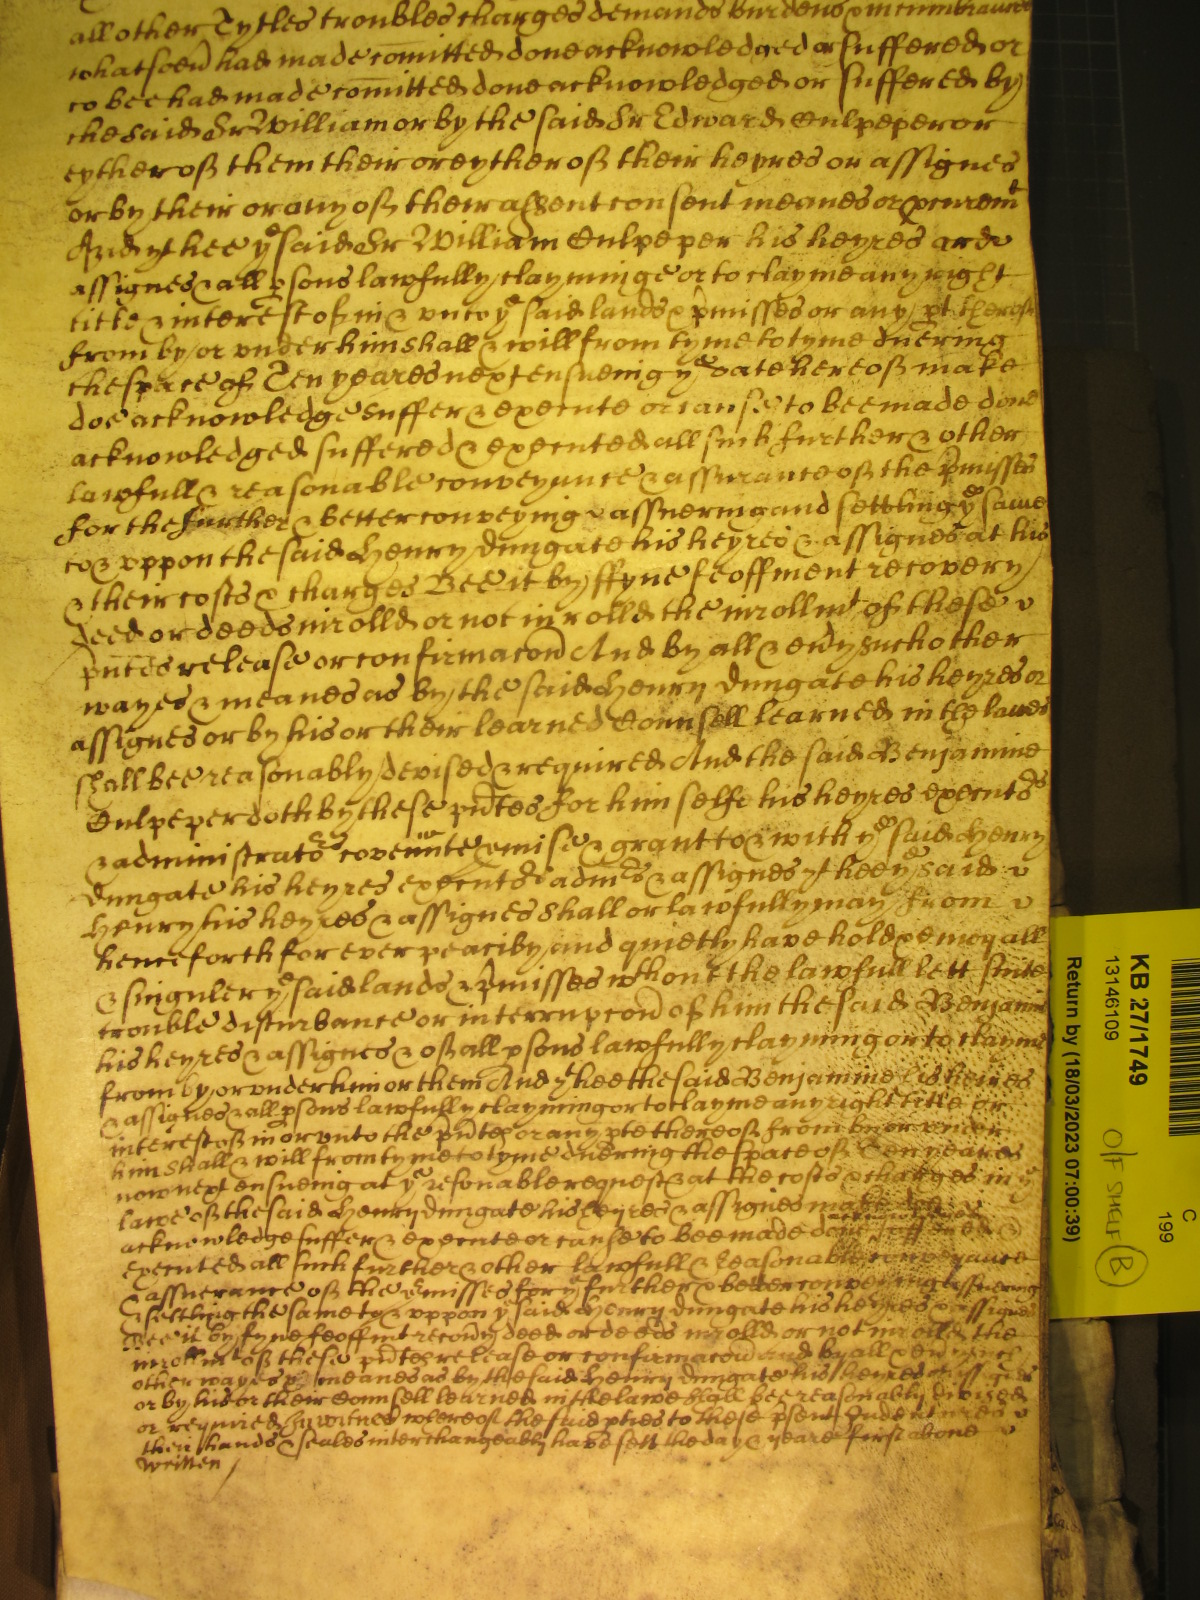 all other Tytles troubles charges demands burdens & incumbraunces
whatsoeũ had made com̃itted done acknowledged or suffered or
to bee had made com̃itted done acknowledged or suffered by
the said Sr William or by the said Sr Edward Culpeper or
eyther of them their or eyther of their heyres or assignes
or by their or any of their assent consent meanes or pcuremt
And yt hee ye said Sr William Culpeper his heyres and
assignes & all psons lawfully clayminge or to clayme any right
title & interest of in & unto ye said lands & pmisses or any pt thereof
from by or under him shall & will from tyme to tyme duering
the space of Ten yeares next ensueing ye date hereof make
doe acknowledge suffer & execute or cause to bee made done
acknowledged suffered & executed all such further & other
lawfull & reasonable conveyance & assurance of the pmisses
for the further & better conveying & assuering and settling ye same
to & uppon the said Henry Dungate his heyres & assignes at his
& their costs & charges Bee it by ffyne feoffment recovery
deed or deeds inrolld or not inrolld the inrollmt of these
pñtes release or confirmacoñ And by all & eũy such other
wayes & meanes as by the said Henry Dungate his heyres or
assignes or by his or their learned Counsell learned in the lawes
shall bee reasonably devised & required And the said Benjamine
Culpeper doth by these pñtes for himselfe his heyres executs
& administrators covennte pmise & grant to & with ye said Henry
Dungate his heyres executs adms & assignes yt hee ye said
Henry his heyres & assignes shall or lawfully may from
henceforth for ever peacibly and quietly have hold & enioy all
& singuler ye said lands & pmisses wthout the lawfull lett suite
trouble disturbance or interrupcoñ of him the said Benjamine
his heyres & assignes & of all psons lawfully clayming or to clayme
from by or under him or them And yt hee the said Benjamine his heires
& assignes & all psons lawfully clayming or to clayme any right title or
interest of in or unto the pñtes or any pte thereof from by or under
him shall & will from tyme to tyme duering the space of Ten yeares
now next ensueing at ye resonable request & at the costs & charges in ye
lawe of the said Henry Dungate his heyres & assignes make doe
acknowledge suffer & execute or cause to bee made done suffered &
executed all such further & other lawfull & reasonable conveyance
& assuerance of the pmisses for ye further & better conveying assuering
& settling the same to & uppon ye said Henry Dungate his heyres & assignes
Bee it by fyne feoffmt recoũy deed or deeds inrolld or not inrolld the
inrollmt of these pñtes release or confirmacoñ and by all & eũy such
other wayes & meanes as by the said Henry Dungate his heyres or assignes
or by his or their Counsell learned in the lawe shall bee reasonably divised
or required In witnes whereof the said pties to these psent Indentures
their hands & seales interchangeably have sett the day & yeare first above
written
KB 27/1749
13146109
Return by (18/03/2023 07:00:39)
O/F SHELF B
C
199